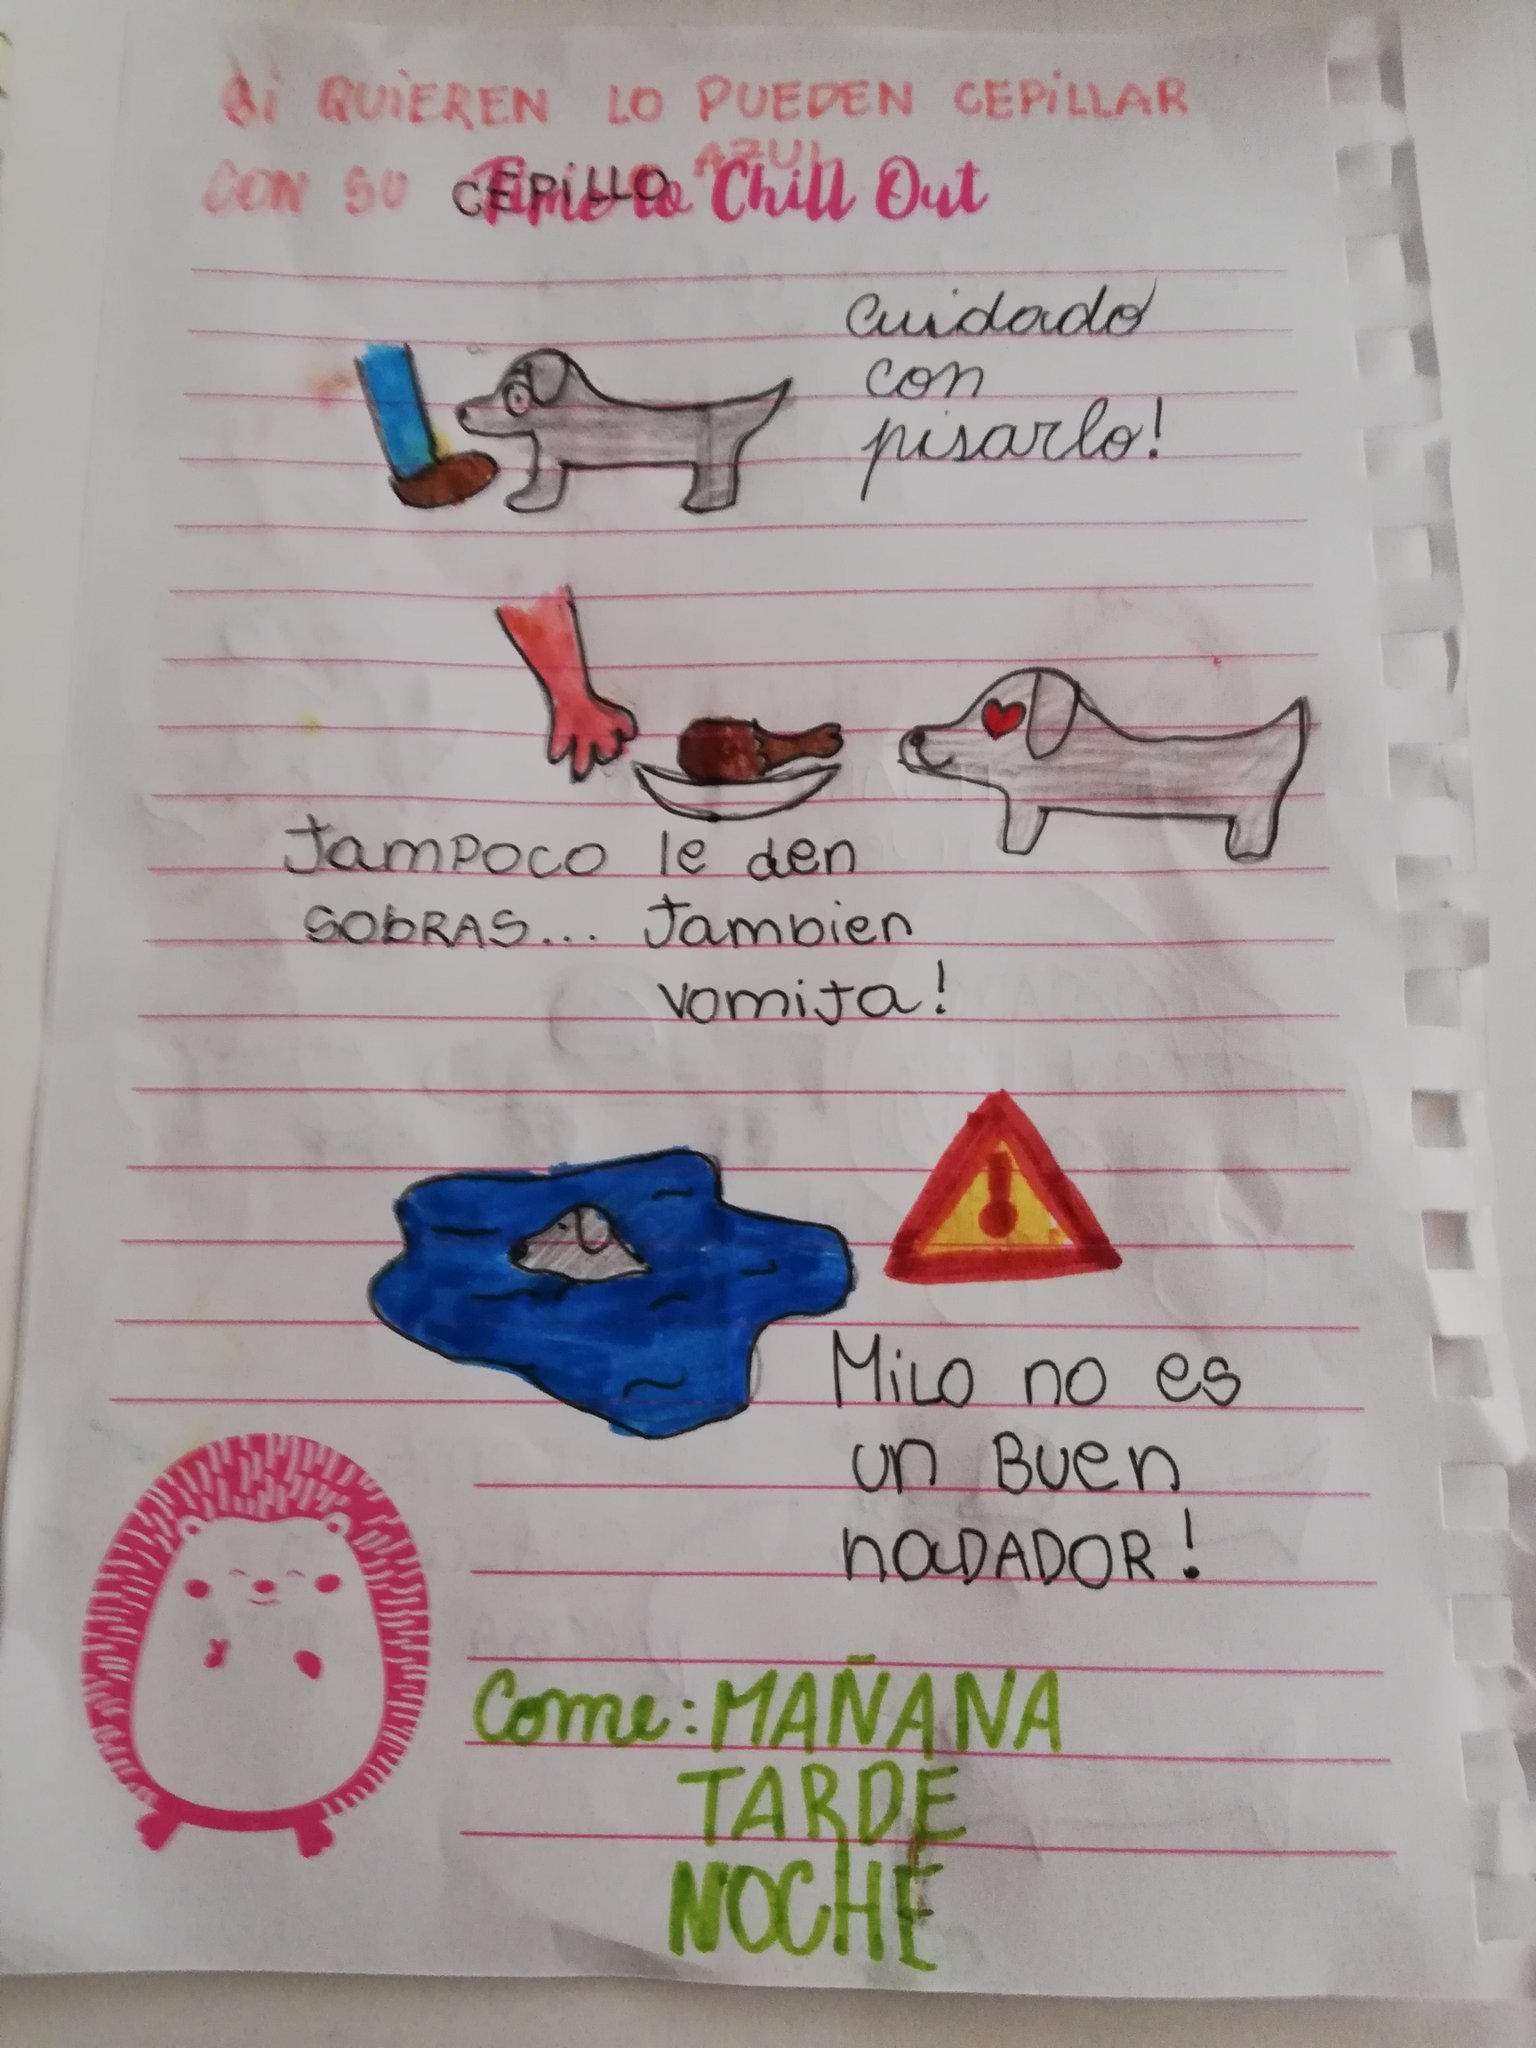 Si QUiEREN LO PUEDEN CEPiLLAR
CON SU CEPiLLO AZUL
Time to Chill Out
Cuidado
con
pisarlo!
Tampoco le den
SObRAS... Tambien
vomita!
MiLo no es
un Buen
naDADOR!
Come: MAÑANA
TARDE
NOCHE